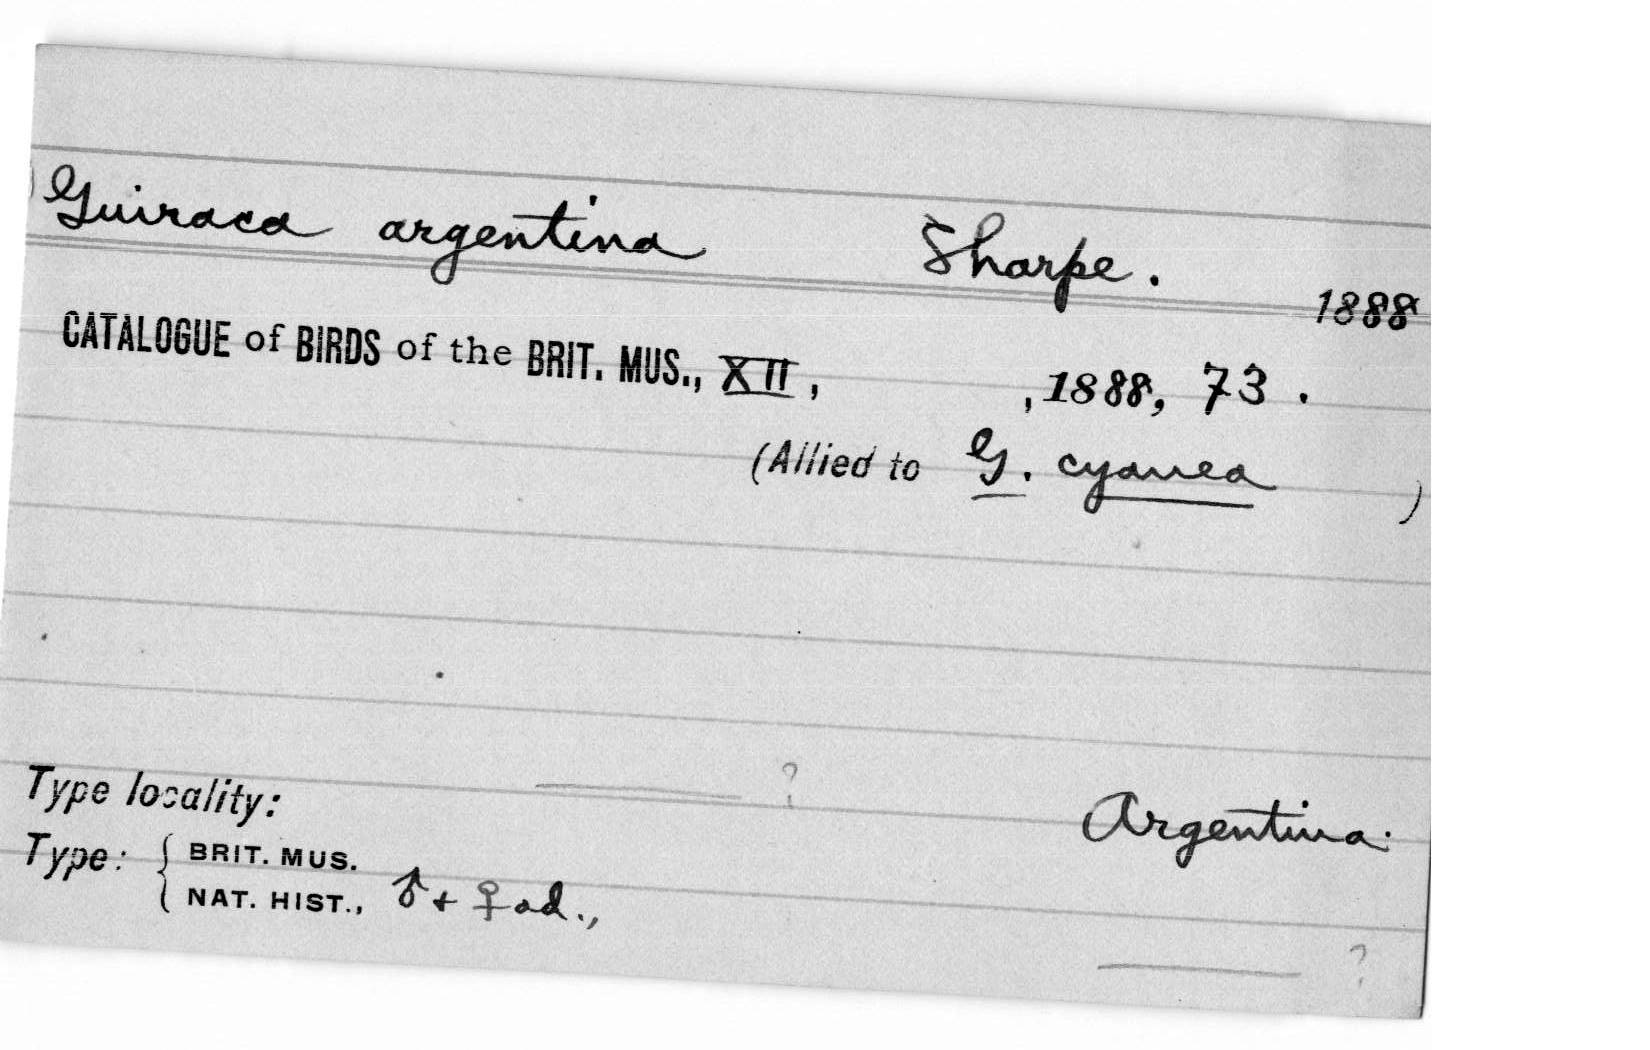 Guiraca argentina Sharpe.
1888
CATALOGUE of BIRDS of the BRIT. MUS., XII, , 1888, 73.
(Allied to G. cyanea )
Type locality: ——— ? Argentina.
Type: { BRIT. MUS.
NAT. HIST., ♂ + ♀ ad.,
——— ?